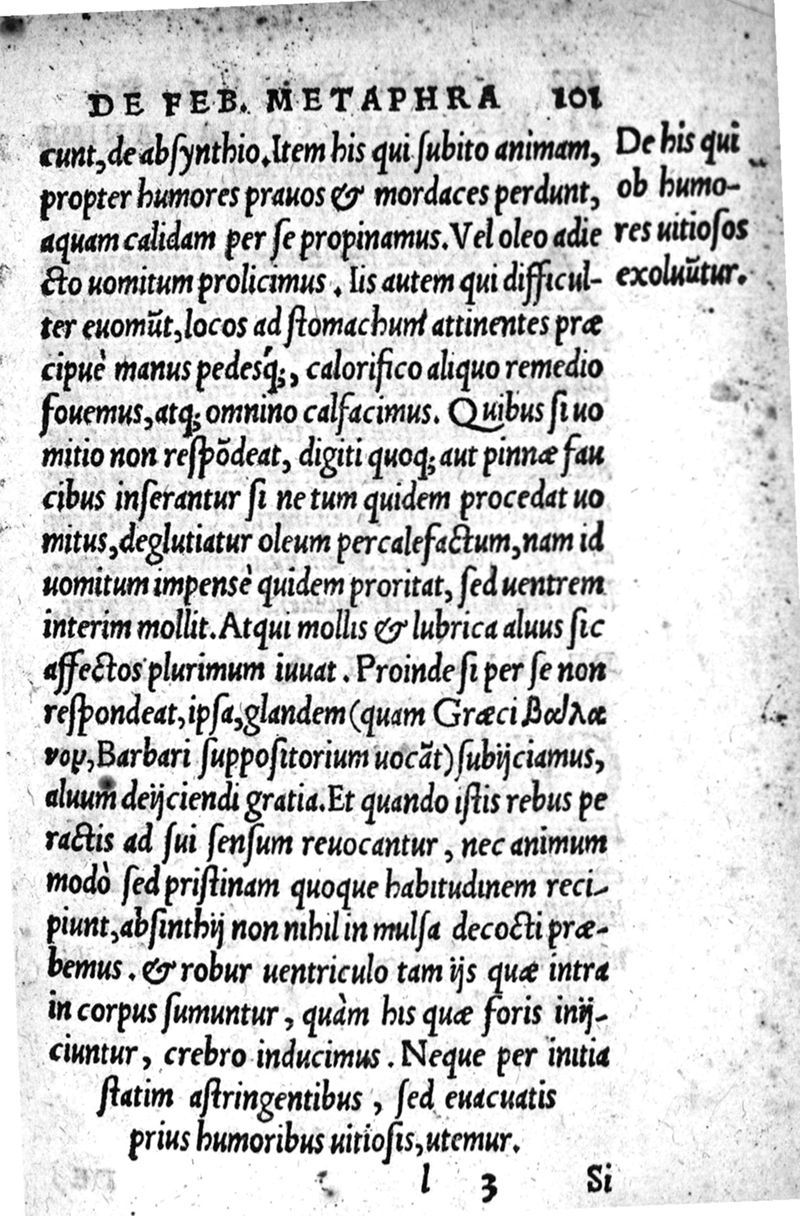 DE FEB. METAPHRA 101
cunt, de absynthio. Item his qui subito animam,
propter humores prauos & mordaces perdunt,
aquam calidam per se propinamus. Vel oleo adie
cto uomitum prolicimus. Iis autem qui difficul-
ter euomūt, locos ad stomachum attinentes præ
cipuè manus pedesq́;, calorifico aliquo remedio
fouemus, atq; omnino calfacimus. Quibus si uo
mitio non respōdeat, digiti quoq; aut pinnæ fau
cibus inserantur si ne tum quidem procedat uo
mitus, deglutiatur oleum percalefactum, nam id
uomitum impensè quidem proritat, sed uentrem
interim mollit. Atqui mollis & lubrica aluus sic
affectos plurimum iuuat. Proinde si per se non
respondeat, ipsa, glandem (quam Græci βαλα
νον, Barbari suppositorium uocāt) subijciamus,
aluum deijciendi gratia. Et quando istis rebus pe
ractis ad sui sensum reuocantur, nec animum
modò sed pristinam quoque habitudinem reci-
piunt, absinthij non nihil in mulsa decocti præ-
bemus. & robur uentriculo tam ijs quæ intra
in corpus sumuntur, quàm his quæ foris inij-
ciuntur, crebro inducimus. Neque per initia
statim astringentibus, sed euacuatis
prius humoribus uitiosis, utemur.
l 3 Si
De his qui
ob humo-
res uitiosos
exoluūtur.